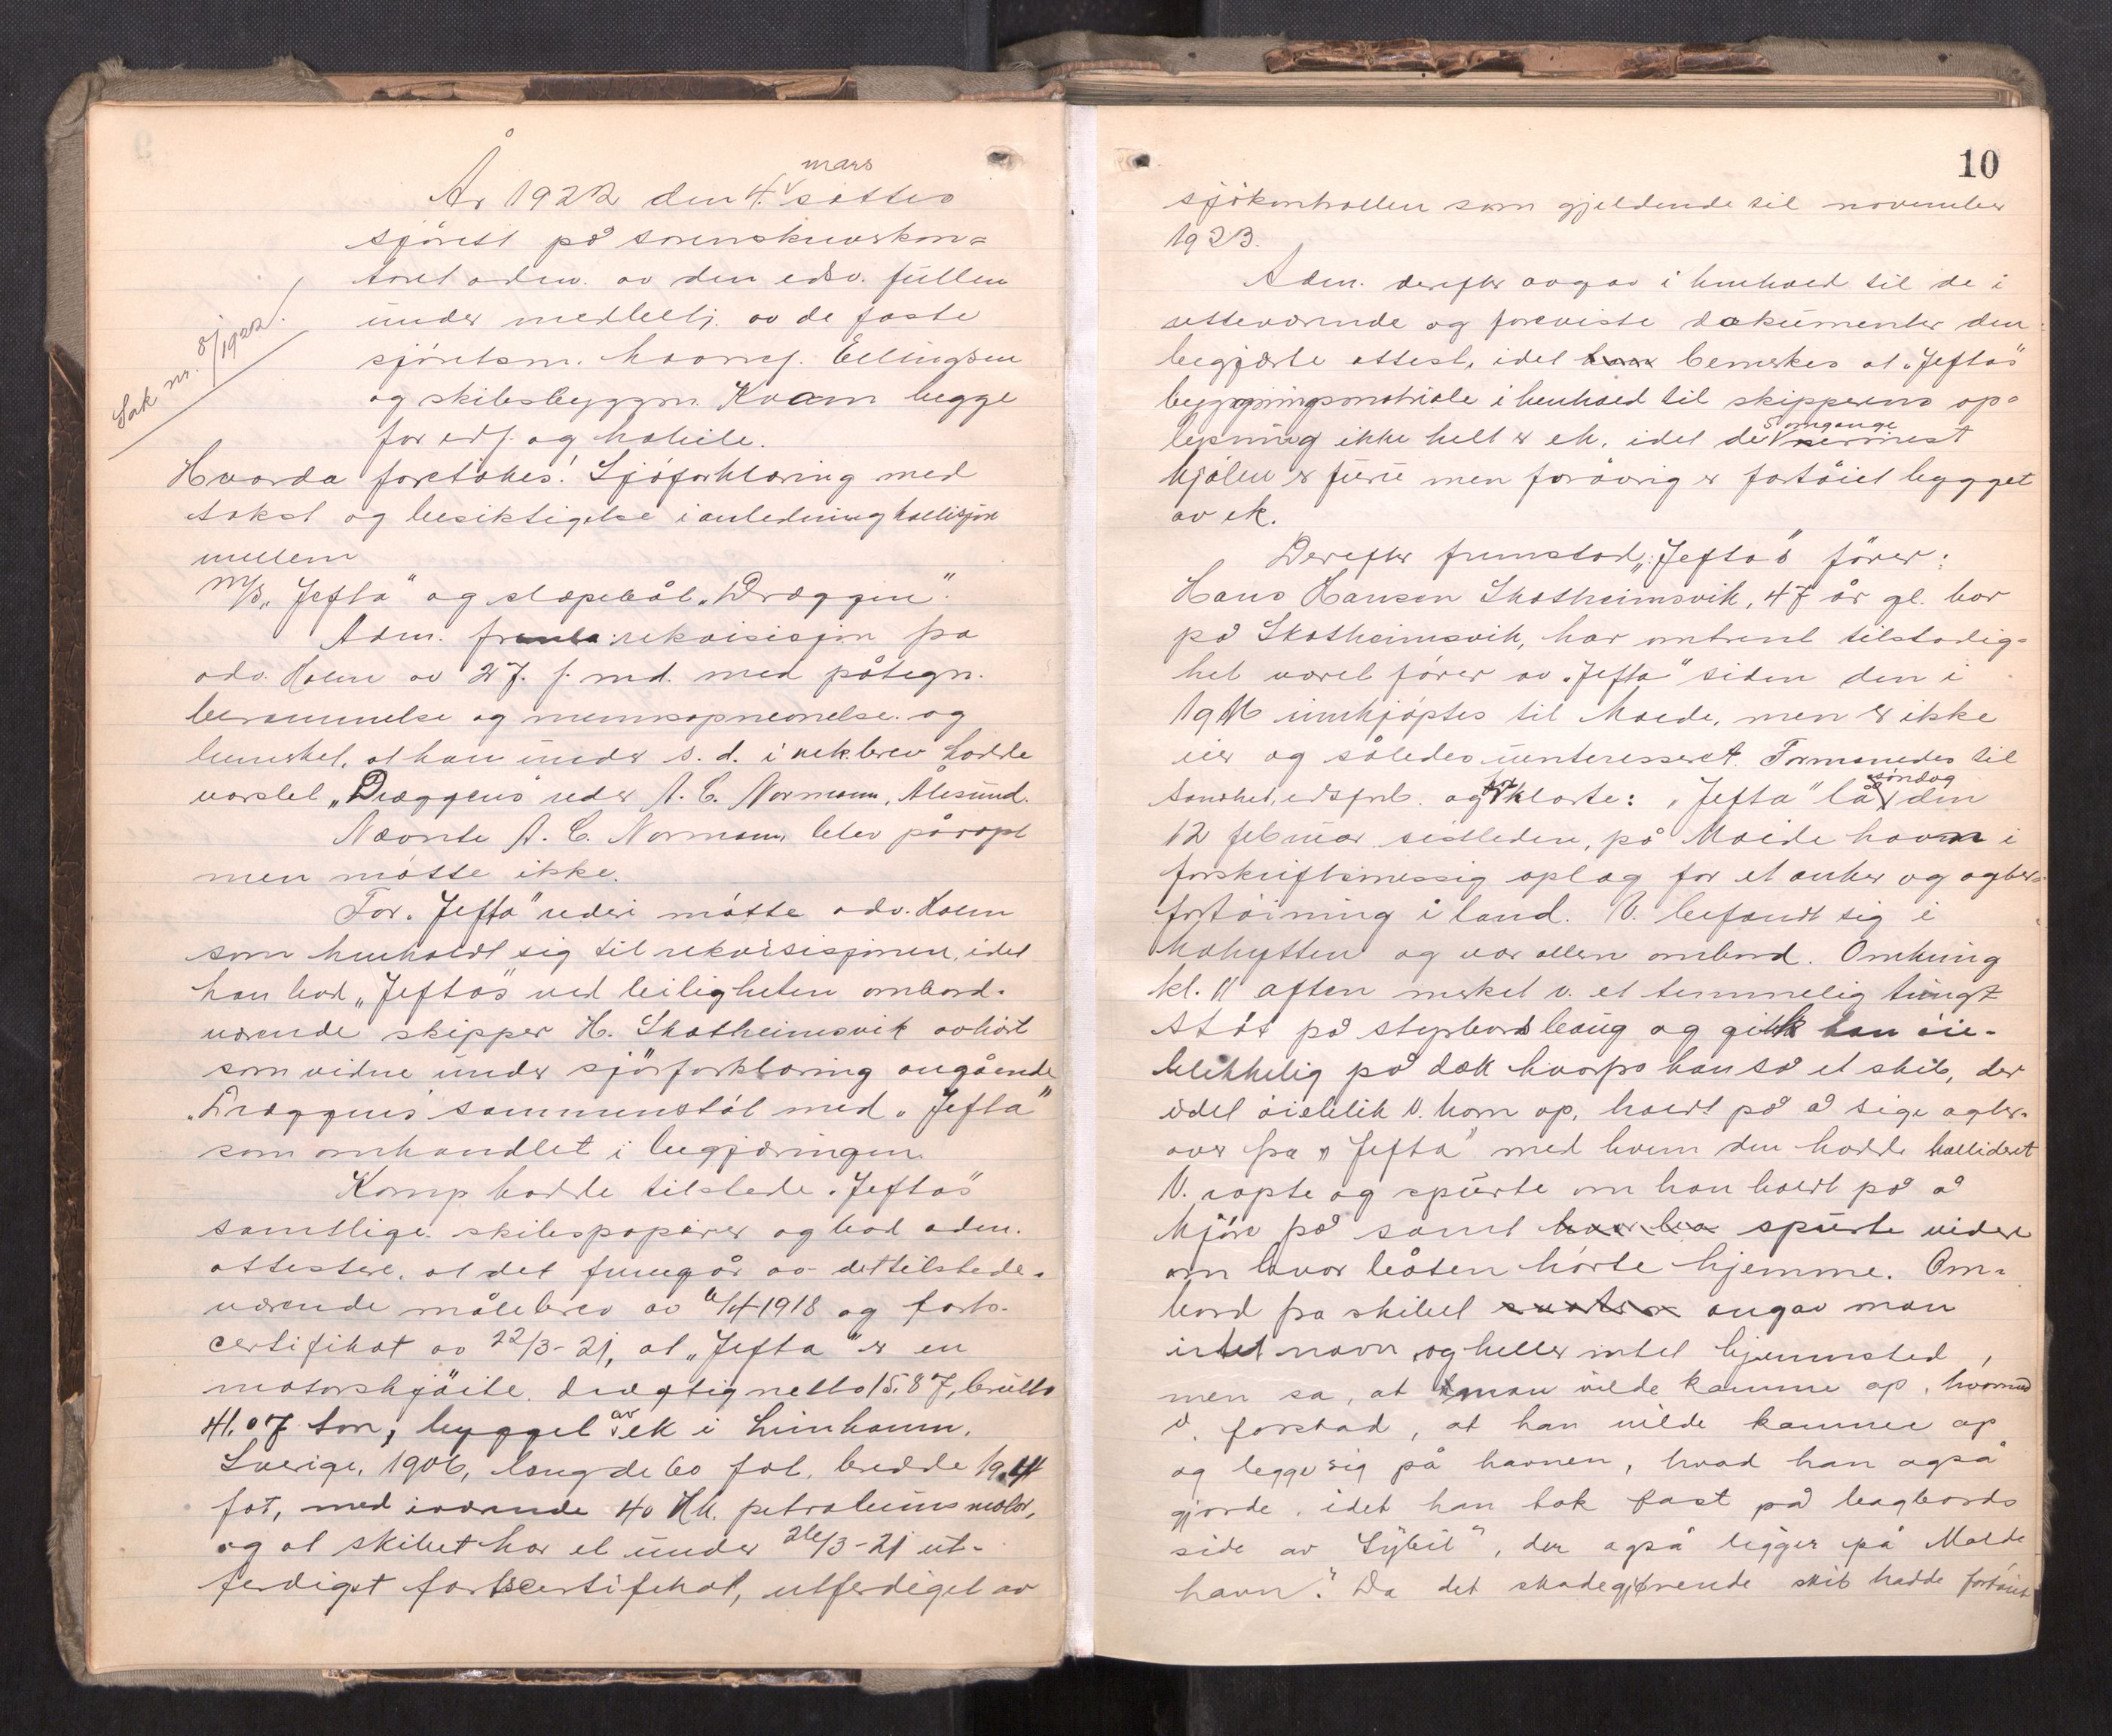 mars
År 1922 den 4. sattes
sjörett på sorenskriverkon=
toret adm. av den edsv. fullm
under medbetj. av de faste
sjöretsm. havnef. Ellingsen
og skibsbyggm. Kvam begge
for edf. og habile.
Sak nr. 8/1922.
Hvorda foretokes: Sjöforklaring med
takst og besiktigelse i anledning kollisjon
mellem
M/S „Jefta" og slæpebåt „Dræggen".
Adm. freml. rekvisisjon fra
adv. Holm av 27. f. md. med påtegn.
berammelse og mennsopnevnelse og
bemerket, at han under s. d. i rek.brev hadde
varslet „Dræggens" reder A. C. Normann, Ålesund.
Nævnte A. C. Normann blev påropt
men møtte ikke.
For „Jefta" rederi møtte adv. Holm
som henholdt sig til rekvisisjonen, idet
han bad „Jeftas" ved leiligheten ombord-
værende skipper H. Skotheimsvik avhørt
som vidne under sjöforklaring angående
„Dræggens" sammenstøt med „Jefta"
som omhandlet i begjæringen.
Komp. hadde tilstede „Jeftas"
samtlige skibspapirer og bad adm.
attestere, at det fremgår av det tilstede-
værende målebrev av 4/4 1918 og farts-
certifikat av 22/3-21, at „Jefta" er en
motorskjøite drægtig netto 15.87, brutto
41.07 ton, bygget av ek i Limhamn,
Sverige, 1906, længde 60 fot, bredde 19.4
fot, med iværende 40 Hk. petroleumsmotor,
og at skibet har et under 26/3-21 ut-
ferdiget fartscertifikat, utferdiget av
10
sjökontrollen som gjeldende til november
1923.
Adm. derefter avgav i henhold til de i
retteværende og foreviste dokumenter den
begjærte attest, idet bemerkes at „Jeftas"
bygningsmateriale i henhold til skipperens op=
lysning ikke helt er ek, idet de 5 omgange nærmest
kjölen er furu men forövrig er fartöiet bygget
av ek.
Derefter fremstod „Jeftas" förer:
Hans Hansen Skotheimsvik, 47 år gl. bor
på Skotheimsvik, har omtrent tilstadig-
het været förer av „Jefta" siden den i
1916 innkjöptes til Molde, men er ikke
eier og således uinteresseret. Formanedes til
sandhet, edsforl. og forklarte: „Jefta" lå söndag den
12 februar sistleden, på Molde havn i
forskriftsmessig oplag for et anker og agter=
fortöining i land. V. befandt sig i
kahytten og var allen ombord. Omkring
kl. 11 aften merket v. et temmelig tungt
støt på styrbords baug og gikk öie-
blikkelig på dekk hvorpå han så et skib, der
idet öieblik v. kom op, holdt på å sige agter-
over fra „Jefta" med hvem den hadde kollideret
V. ropte og spurte om han holdt på å
kjöre på samt spurte videre
om hvor båten hörte hjemme. Om=
bord fra skibet angav man
intet navn og heller intet hjemmsted,
men sa, at man vilde komme op, hvormed
v. forstod, at han vilde komme op
og legge sig på havnen, hvad han også
gjorde, idet han tok fast på bagbords
side av „Sybil", der også ligger på Molde
havn. Da det skadegjörende skib hadde fortöiet